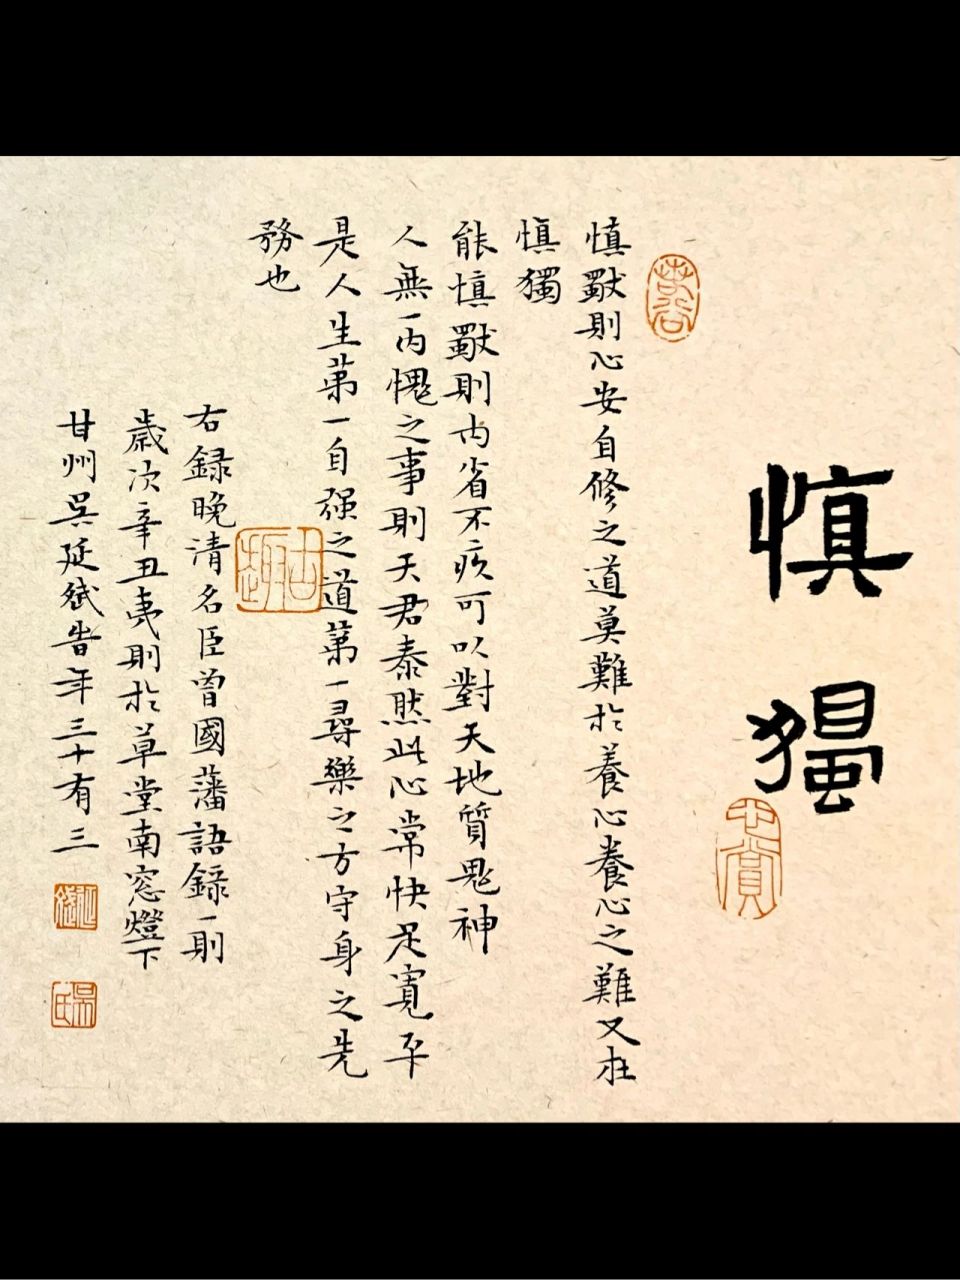 慎獨
慎獸則心安自修之道莫難於養心養心之難又在
慎獨
能慎獸則内省不疚可以對天地質鬼神
人無一内愧之事則天君泰然此心常快足寬平
是人生第一自强之道第一尋樂之方守身之先
務也
右録晚清名臣曾國藩語録一則
歲次辛丑夷則於草堂南窓燈下
甘州吳延斌告年三十有三